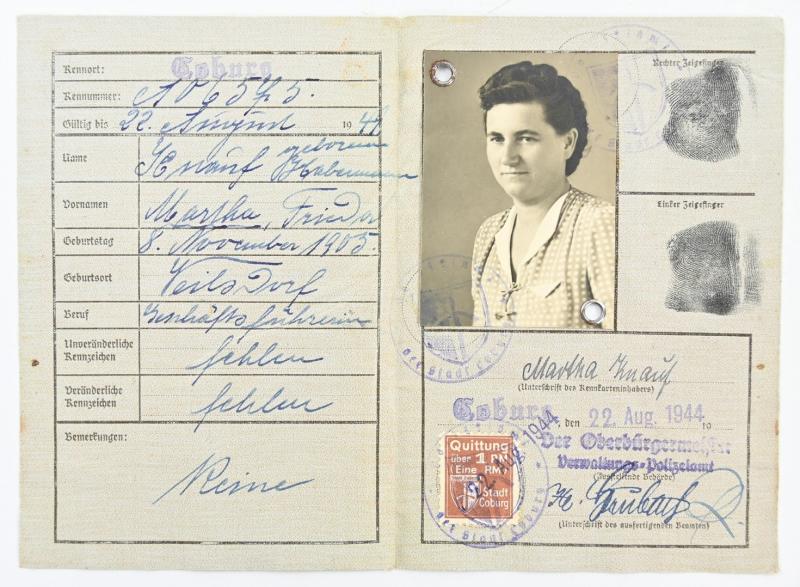 Kennort: Coburg
Kennummer: A 06575.
Gültig bis 22. August 194
Name Knauf geborene
Habermann
Vornamen Martha, Frieda
Geburtstag 8. November 1905.
Geburtsort Veilsdorf
Beruf Geschäftsführerin
Unveränderliche Kennzeichen fehlen
Veränderliche Kennzeichen fehlen
Bemerkungen:
Keine
Rechter Zeigefinger
Linker Zeigefinger
Martha Knauf
(Unterschrift des Kennkarteninhabers)
Coburg, den 22. Aug. 1944 19
Der Oberbürgermeister
Verwaltungs-Polizeiamt
(Ausstellende Behörde)
(Unterschrift des ausfertigenden Beamten)
Quittung
über 1 RM
(Eine RM)
Stadt
Coburg
22. Aug. 1944
der Stadt Coburg
der Stadt Coburg